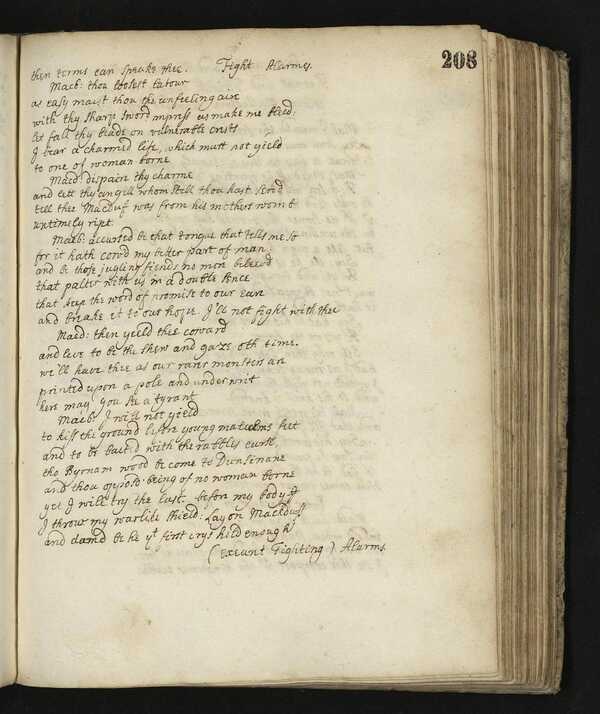 208
then terms can speake thee. Fight Alarmes.
Macb: thou loosest labour
as easy maist thou the unfeeling aire
with thy sharp sword impress as make me bleed;
let fall thy blade on vulnerable crests
I bear a charmed life, which must not yield
to one of woman borne
Macd: dispaire thy charme
and lett the angill whom still thou hast servd
tell thee Macduf was from his mothers womb
untimely ript.
Macb: accursed be that tongue that tells me so
for it hath cowd my better part of man:
and be those jugling fiends no more beleevd
that palter with us in a double sence
that keep the word of promise to our eare
and breake it to our hope. I'll not fight with thee
Macd: then yeeld thee coward
and live to be the shew and gaze oth time.
we'll have thee as our rarer monsters are
printed upon a pole and under writ
here may you see a tyrant
Macb: I will not yeild
to kiss the ground before young malcolms feet
and to be baitd with the rabbles curse
tho Byrnam wood be come to Dunsinane
and thou oposd. being of no woman borne
yet I will try the last. before my body
I throw my warlike shield. Lay on Mackduff
and damd be he yt first crys hold enough
(exeunt Fighting) Alarms.